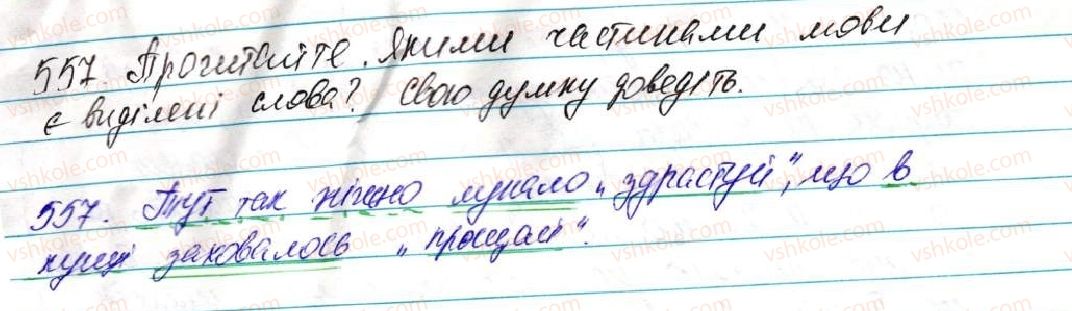 557. Прочитайте. Якими частинами мови
є виділені слова? Свою думку доведіть.
557. Тут так ніжно лунало „здрастуй", що в
кущі заховалось „прощай".